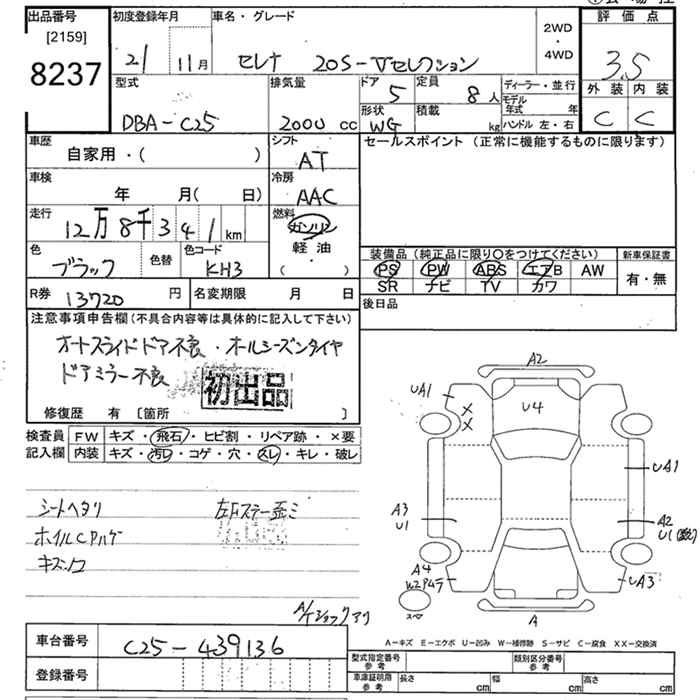 出品番号 初度登録年月 車名・グレード 評価点
[2159]
8237 21 11月 セレナ 20S-Vセレクション 2WD・4WD 3.5
型式 排気量 ドア 定員 ディーラー・並行 外装 内装
DBA-C25 2000 cc 5 8人 モデル年式 年 C C
形状 WG 積載 kg ハンドル 左・右
車歴 シフト セールスポイント (正常に機能するものに限ります)
自家用・( ) AT
車検 冷房
年 月( 日) AAC
走行 燃料
12万8千341 km ガソリン
軽油
( )
色 色替 色コード 装備品(純正品に限り○をつけてください) 新車保証書
ブラック KH3 PS PW ABS エアB AW 有・無
SR ナビ TV カワ
R券 13720 円 名変期限 月 日 後日品
注意事項申告欄(不具合内容等は具体的に記入して下さい)
オートスライドドア不良・オールシーズンタイヤ
ドアミラー不良
初出品
修復歴 有 [箇所 ]
検査員 FW キズ・飛石・ヒビ割・リペア跡・×要
記入欄 内装 キズ・汚レ・コゲ・穴・スレ・キレ・破レ
シートヘタリ 左Fステー歪ミ
ホイルCPハゲ
A2
UA1
U4
X
X
UA1
A3
U1
A2
U1
A4
W2
UA3
A
スペア
車台番号 C25-439136
登録番号
A-キズ E-エクボ U-凹み W-補修跡 S-サビ C-腐食 XX-交換済
型式指定番号 参考 類別区分番号 参考
車庫証明用 参考 長さ cm 幅 cm 高さ cm